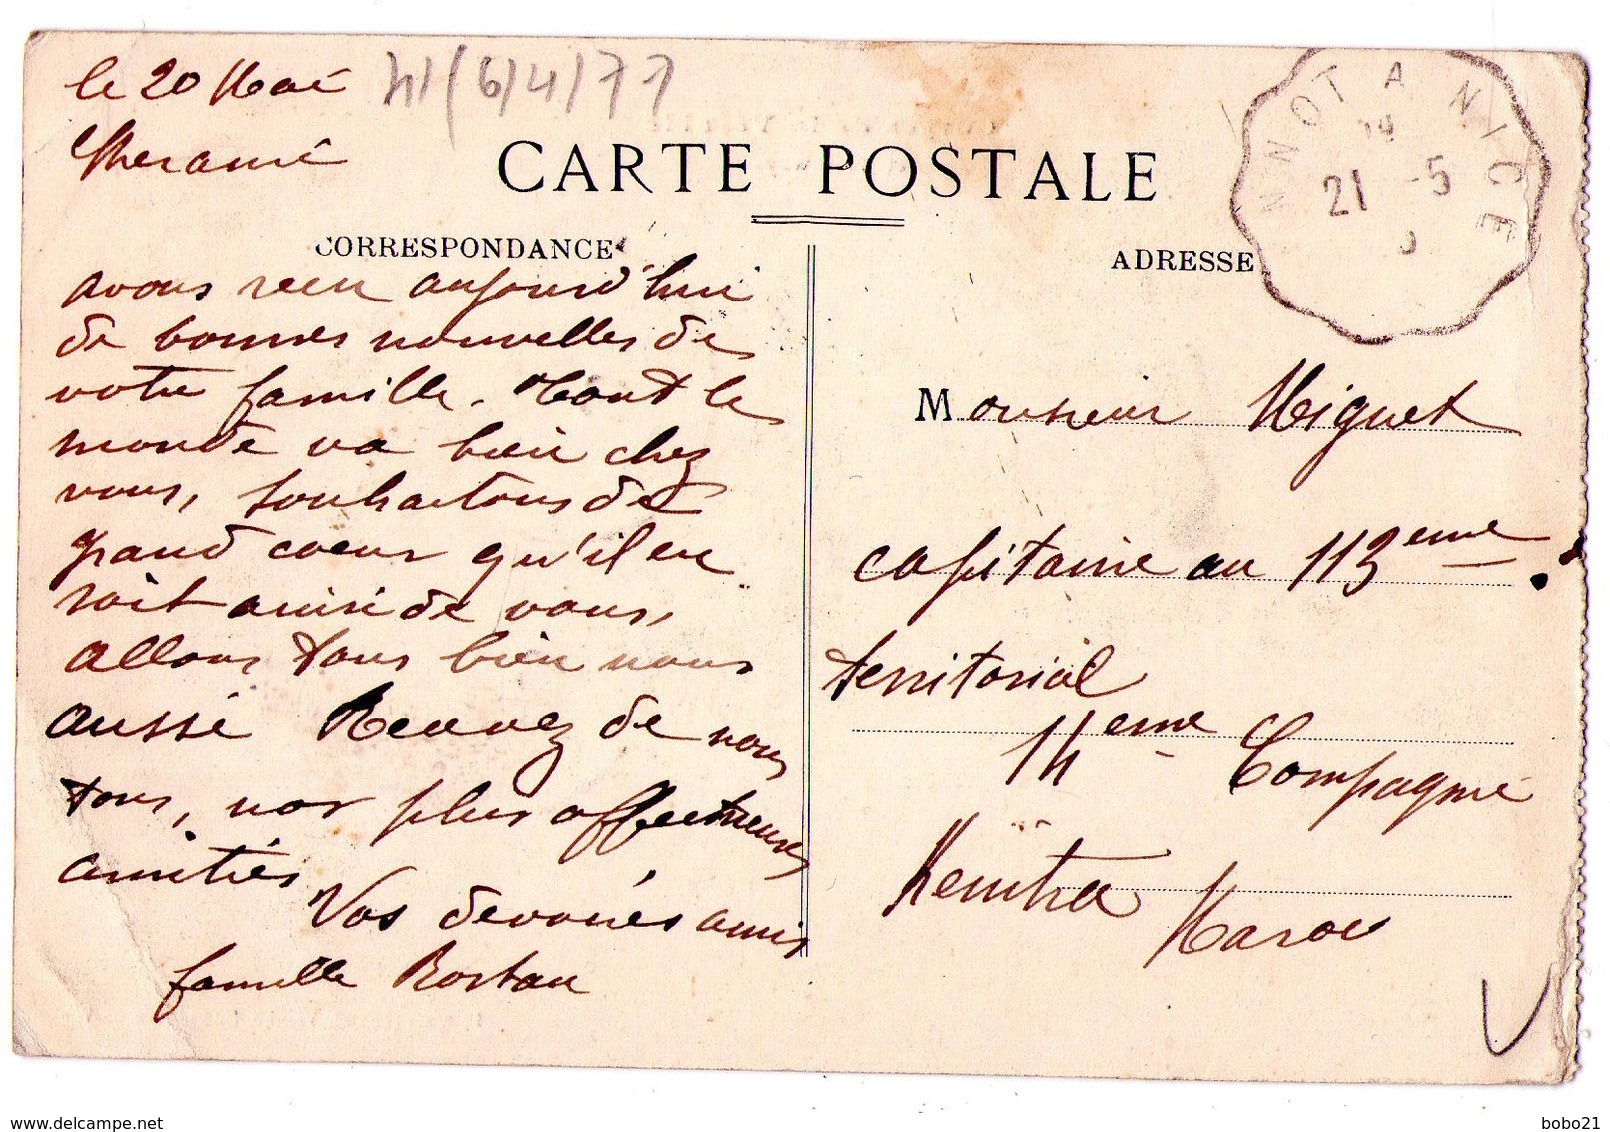 le 20 Mai
CARTE POSTALE
CORRESPONDANCE
avons reçu aujourd'hui
de bonnes nouvelles de
votre famille. Tout le
monde va bien chez
vous, souhaitons de
grand coeur qu'il en
soit ainsi de vous,
allons tous bien nous
aussi Recevez de nous
tous, nos plus affectueuses
amitiés
Vos dévoués amis
famille Rostan
NNOT A NICE
21 -5
ADRESSE
Monsieur Miguet
capitaine au 113eme
territorial
14eme Compagnie
Kenitra
Maroc
bobo21